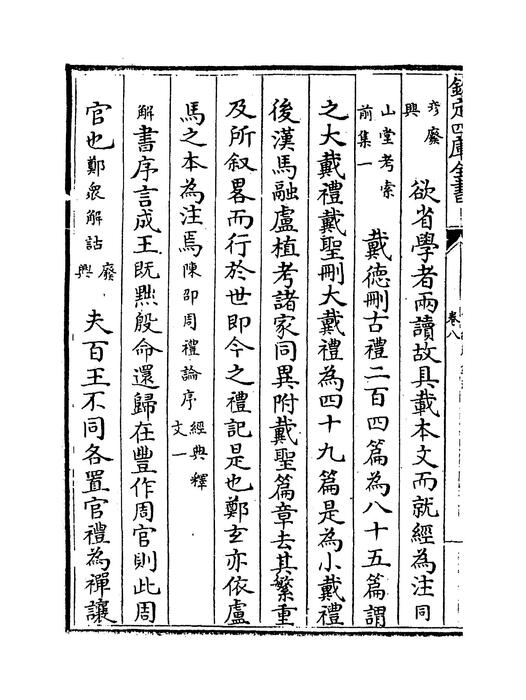 欽定四庫全書
卷八
考廢興
欲省學者兩讀故具載本文而就經為注同
山堂考索前集一
戴德刪古禮二百四篇為八十五篇謂
之大戴禮戴聖刪大戴禮為四十九篇是為小戴禮
後漢馬融盧植考諸家同異附戴聖篇章去其繁重
及所敘畧而行於世即今之禮記是也鄭玄亦依盧
馬之本為注焉陳邵周禮論序經典釋文一
解書序言成王既黜殷命還歸在豐作周官則此周
官也鄭衆解詁廢興
夫百王不同各置官禮為禪讓